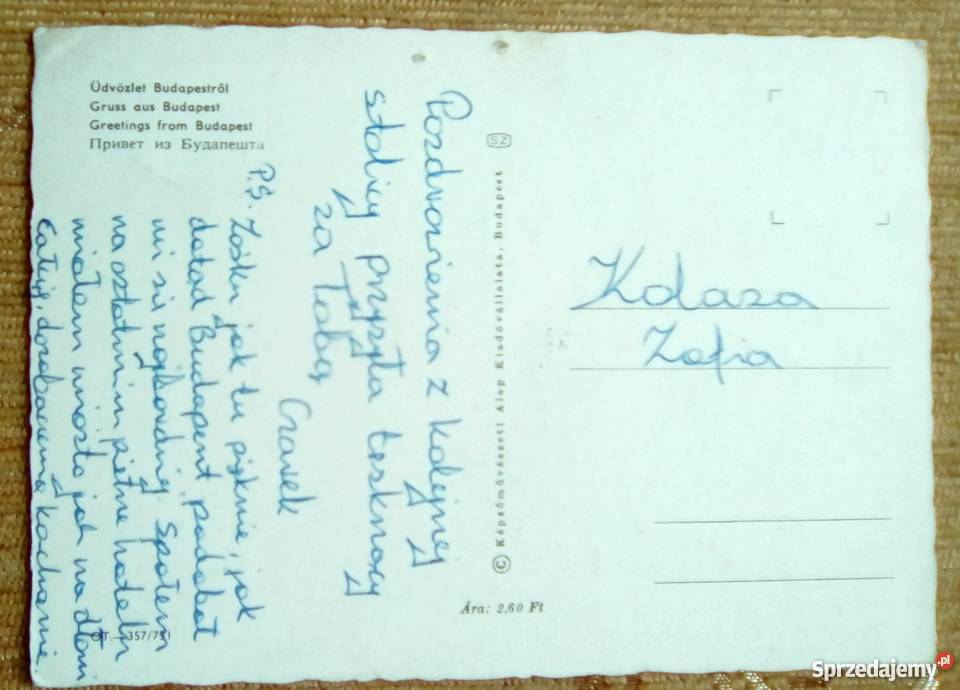 Üdvözlet Budapestről
Gruss aus Budapest
Greetings from Budapest
Привет из Будапешта
Pozdrowienia z kolejnej
stolicy przysyła tęskniący
za Tobą
Czarek
P.S. Zośka jak tu pięknie, jak
dotąd Budapeszt podobał
mi się najbardziej. Spałem
na ostatnim piętrze hotelu
miałem miasto jak na dłoni
Całuję, kochanie.
SZ
© Képzőművészeti Alap Kiadóvállalata, Budapest
Ára: 2,60 Ft
OT.—357/751
Kolasa
Zofia
Sprzedajemy.pl